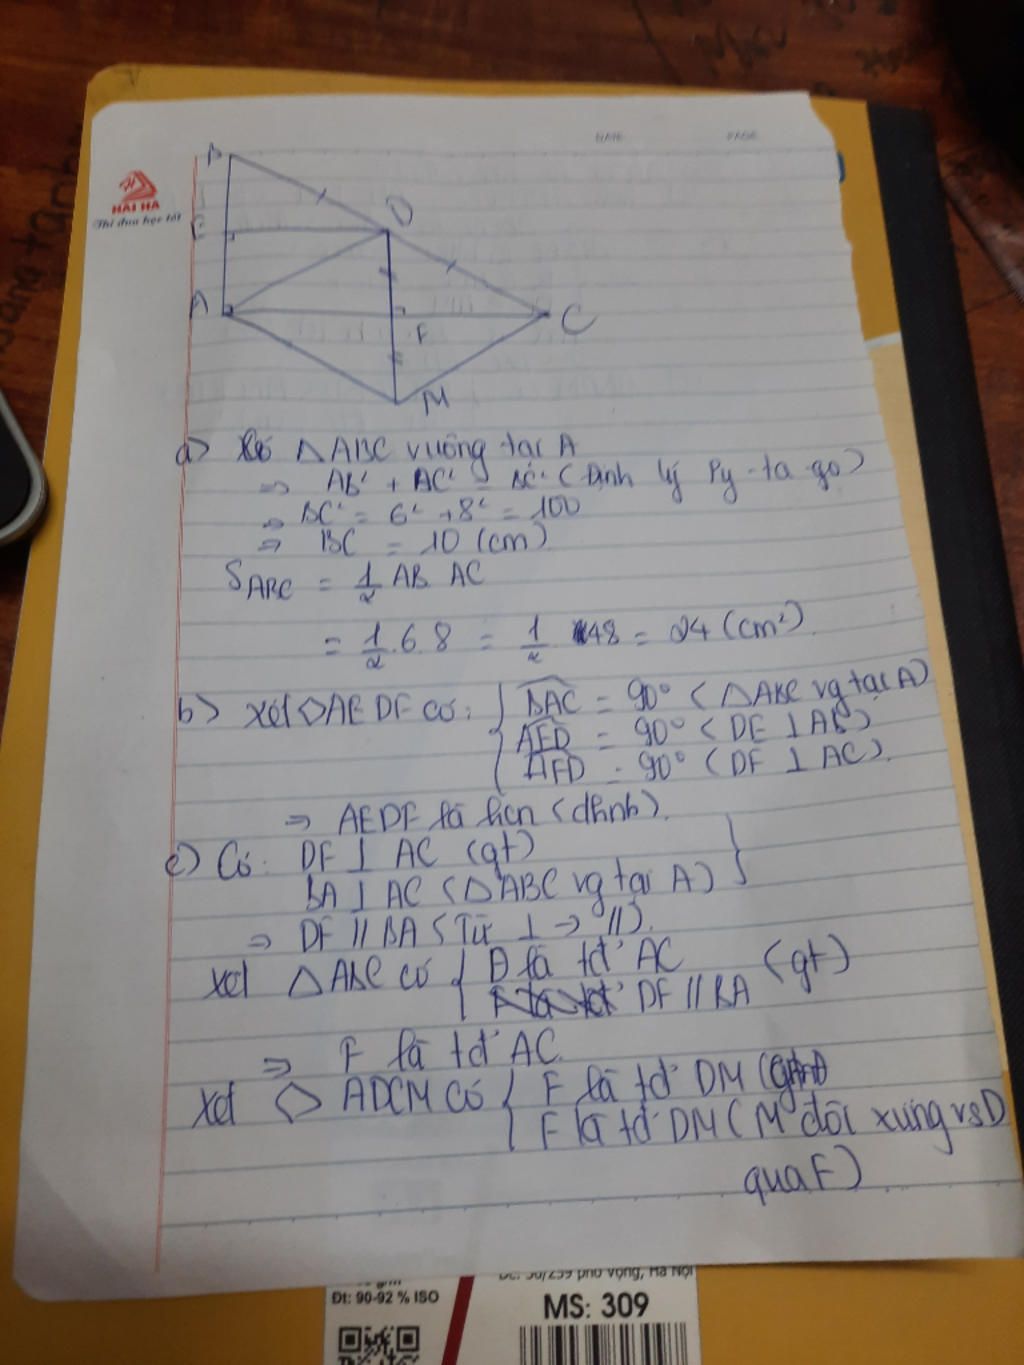 DATE PAGE
HẢI HÀ
Thi đua học tốt
B
D
E
A
F
C
M
a) Có △ABC vuông tại A
⇒ AB² + AC² = BC² (Định lý Py-ta go)
⇒ BC² = 6² + 8² = 100
⇒ BC = 10 (cm)
S ABC = 1/2 AB AC
= 1/2 . 6 . 8 = 1/2 48 = 24 (cm²)
b) Xét ◇AEDF có: { BAC = 90° (△ABC vg tại A)
AED = 90° (DE ⊥ AB)
AFD = 90° (DF ⊥ AC).
⇒ AEDF là hcn (dhnb).
c) Có: DF ⊥ AC (gt)
BA ⊥ AC (△ABC vg tại A) }
⇒ DF // BA (Từ ⊥ → //).
Xét △ABC có { D là tđ' AC (gt)
DF // BA
⇒ F là tđ' AC.
Xét ◇ ADCM có { F là tđ' DM
F là tđ' DM (M đối xứng vs D
qua F)
Đt: 90-92 % ISO
Đc: 50/259 phố Vọng, Hà Nội
MS: 309